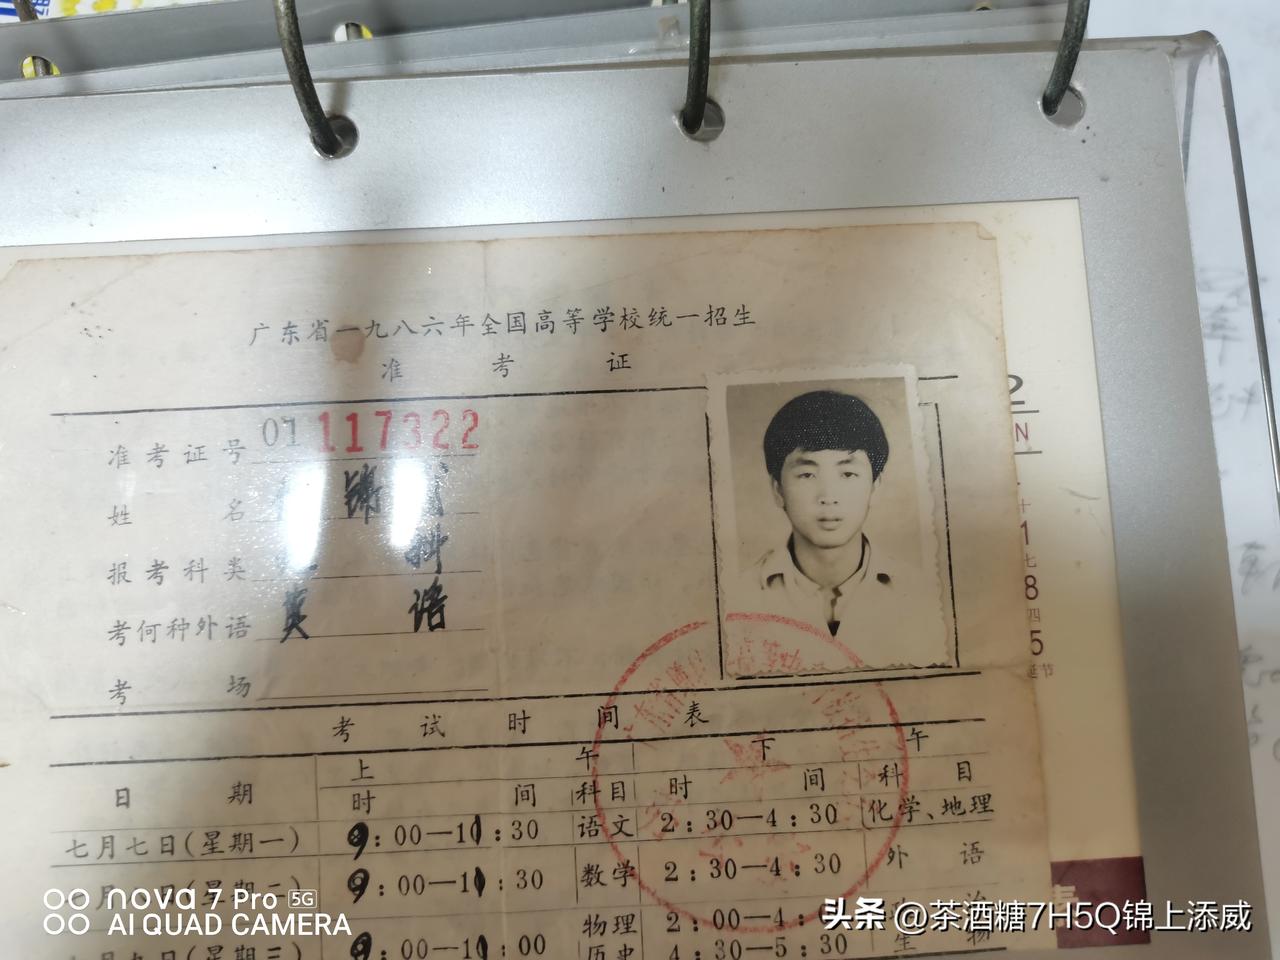 广东省一九八六年全国高等学校统一招生
准考证
准考证号 01 117322
姓名 锦
报考科类 科
考何种外语 英语
考场
考试时间表
日期 上午 下午
时间 科目 时间 科目
七月七日(星期一) 9:00—11:30 语文 2:30—4:30 化学、地理
月八日(星期二) 9:00—11:30 数学 2:30—4:30 外语
物理 2:00—4:
七月九日(星期三) 9:00—11:00 历史 4:30—5:30 生物
2
N
十
1
七
8
四
5
nova 7 Pro 5G
AI QUAD CAMERA
头条 @茶酒糖7H5Q锦上添威